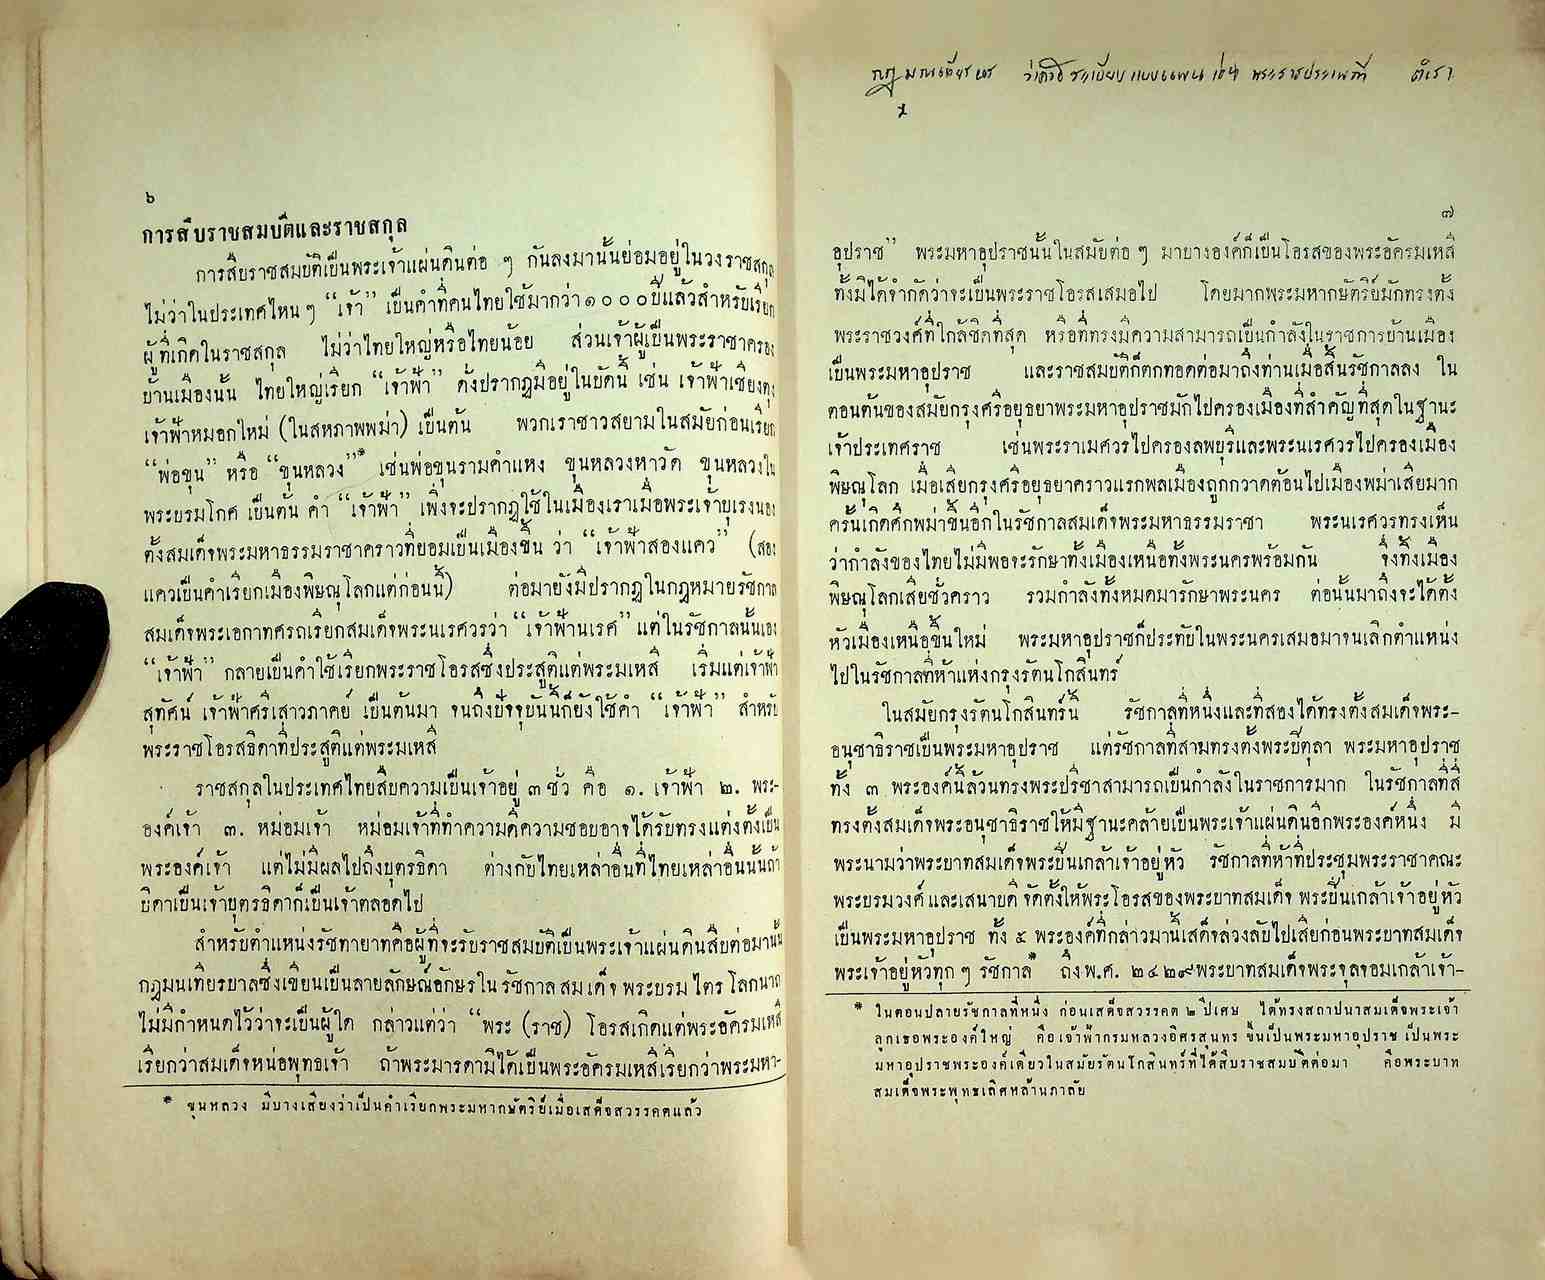 ๖
การสืบราชสมบัติและราชสกุล
การสืบราชสมบัติเป็นพระเจ้าแผ่นดินต่อ ๆ กันลงมานั้นย่อมอยู่ในวงราชสกุล
ไม่ว่าในประเทศไหน ๆ “เจ้า” เป็นคำที่คนไทยใช้มากว่า ๑๐๐๐ ปีแล้วสำหรับเรียก
ผู้ที่เกิดในราชสกุล ไม่ว่าไทยใหญ่หรือไทยน้อย ส่วนเจ้าผู้เป็นพระราชาครอง
บ้านเมืองนั้น ไทยใหญ่เรียก “เจ้าฟ้า” ดั่งปรากฏมีอยู่ในบัดนี้ เช่น เจ้าฟ้าเชียงตุง
เจ้าฟ้าหมอกใหม่ (ในสหภาพพม่า) เป็นต้น พวกเราชาวสยามในสมัยก่อนเรียก
“พ่อขุน” หรือ “ขุนหลวง”* เช่นพ่อขุนรามคำแหง ขุนหลวงหาวัด ขุนหลวงใน
พระบรมโกศ เป็นต้น คำ “เจ้าฟ้า” เพิ่งจะปรากฏใช้ในเมืองเราเมื่อพระเจ้าบุเรงนอง
ตั้งสมเด็จพระมหาธรรมราชาคราวที่ยอมเป็นเมืองขึ้น ว่า “เจ้าฟ้าสองแคว” (สอง
แควเป็นคำเรียกเมืองพิษณุโลกแต่ก่อนนี้) ต่อมายังมีปรากฏในกฎหมายรัชกาล
สมเด็จพระเอกาทศรถเรียกสมเด็จพระนเรศวรว่า “เจ้าฟ้านเรศ” แต่ในรัชกาลนั้นเอง
“เจ้าฟ้า” กลายเป็นคำใช้เรียกพระราชโอรสซึ่งประสูติแต่พระมเหสี เริ่มแต่เจ้าฟ้า
สุทัศน์ เจ้าฟ้าศรีเสาวภาคย์ เป็นต้นมา จนถึงปัจจุบันนี้ก็ยังใช้คำ “เจ้าฟ้า” สำหรับ
พระราชโอรสธิดาที่ประสูติแต่พระมเหสี
ราชสกุลในประเทศไทยสืบความเป็นเจ้าอยู่ ๓ ชั่ว คือ ๑. เจ้าฟ้า ๒. พระ-
องค์เจ้า ๓. หม่อมเจ้า หม่อมเจ้าที่ทำความดีความชอบอาจได้รับทรงแต่งตั้งเป็น
พระองค์เจ้า แต่ไม่มีผลไปถึงบุตรธิดา ต่างกับไทยเหล่าอื่นที่ไทยเหล่าอื่นนั้นถ้า
บิดาเป็นเจ้าบุตรธิดาก็เป็นเจ้าตลอดไป
สำหรับตำแหน่งรัชทายาทคือผู้ที่จะรับราชสมบัติเป็นพระเจ้าแผ่นดินสืบต่อมานั้น
กฎมนเทียรบาลซึ่งเขียนเป็นลายลักษณ์อักษรในรัชกาลสมเด็จพระบรมไตรโลกนาถ
ไม่มีกำหนดไว้ว่าจะเป็นผู้ใด กล่าวแต่ว่า “พระ (ราช) โอรสเกิดแต่พระอัครมเหสี
เรียกว่าสมเด็จหน่อพุทธเจ้า ถ้าพระมารดามิได้เป็นพระอัครมเหสีเรียกว่าพระมหา-
* ขุนหลวง มีบางเสียงว่าเป็นคำเรียกพระมหากษัตริย์เมื่อเสด็จสวรรคตแล้ว
กฎมณเฑียรบาล ว่าด้วยระเบียบแบบแผน เช่น พระราชประเพณี ตำรา
๗
อุปราช” พระมหาอุปราชนั้นในสมัยต่อ ๆ มาบางองค์ก็เป็นโอรสของพระอัครมเหสี
ทั้งมิได้จำกัดว่าจะเป็นพระราชโอรสเสมอไป โดยมากพระมหากษัตริย์มักทรงตั้ง
พระราชวงศ์ที่ใกล้ชิดที่สุด หรือที่ทรงมีความสามารถเป็นกำลังในราชการบ้านเมือง
เป็นพระมหาอุปราช และราชสมบัติก็ตกทอดต่อมาถึงท่านเมื่อสิ้นรัชกาลลง ใน
ตอนต้นของสมัยกรุงศรีอยุธยาพระมหาอุปราชมักไปครองเมืองที่สำคัญที่สุดในฐานะ
เจ้าประเทศราช เช่นพระราเมศวรไปครองลพบุรีและพระนเรศวรไปครองเมือง
พิษณุโลก เมื่อเสียกรุงศรีอยุธยาคราวแรกพลเมืองถูกกวาดต้อนไปเมืองพม่าเสียมาก
ครั้นเกิดศึกพม่าขึ้นอีกในรัชกาลสมเด็จพระมหาธรรมราชา พระนเรศวรทรงเห็น
ว่ากำลังของไทยไม่มีพอจะรักษาทั้งเมืองเหนือทั้งพระนครพร้อมกัน จึ่งทิ้งเมือง
พิษณุโลกเสียชั่วคราว รวมกำลังทั้งหมดมารักษาพระนคร ต่อนั้นมาถึงจะได้ตั้ง
หัวเมืองเหนือขึ้นใหม่ พระมหาอุปราชก็ประทับในพระนครเสมอมาจนเลิกตำแหน่ง
ไปในรัชกาลที่ห้าแห่งกรุงรัตนโกสินทร์
ในสมัยกรุงรัตนโกสินทร์นี้ รัชกาลที่หนึ่งและที่สองได้ทรงตั้งสมเด็จพระ-
อนุชาธิราชเป็นพระมหาอุปราช แต่รัชกาลที่สามทรงตั้งพระปิตุลา พระมหาอุปราช
ทั้ง ๓ พระองค์นี้ล้วนทรงพระปรีชาสามารถเป็นกำลังในราชการมาก ในรัชกาลที่สี่
ทรงตั้งสมเด็จพระอนุชาธิราชให้มีฐานะคล้ายเป็นพระเจ้าแผ่นดินอีกพระองค์หนึ่ง มี
พระนามว่าพระบาทสมเด็จพระปิ่นเกล้าเจ้าอยู่หัว รัชกาลที่ห้าที่ประชุมพระราชาคณะ
พระบรมวงศ์ และเสนาบดี จัดตั้งให้พระโอรสของพระบาทสมเด็จ พระปิ่นเกล้าเจ้าอยู่หัว
เป็นพระมหาอุปราช ทั้ง ๕ พระองค์ที่กล่าวมานี้เสด็จล่วงลับไปเสียก่อนพระบาทสมเด็จ
พระเจ้าอยู่หัวทุก ๆ รัชกาล* ถึงพ.ศ. ๒๔๒๙ พระบาทสมเด็จพระจุลจอมเกล้าเจ้า-
* ในตอนปลายรัชกาลที่หนึ่ง ก่อนเสด็จสวรรคต ๒ ปีเศษ ได้ทรงสถาปนาสมเด็จพระเจ้า
ลูกเธอพระองค์ใหญ่ คือเจ้าฟ้ากรมหลวงอิศรสุนทร ขึ้นเป็นพระมหาอุปราช เป็นพระ
มหาอุปราชพระองค์เดียวในสมัยรัตนโกสินทร์ที่ได้สืบราชสมบัติต่อมา คือพระบาท
สมเด็จพระพุทธเลิศหล้านภาลัย